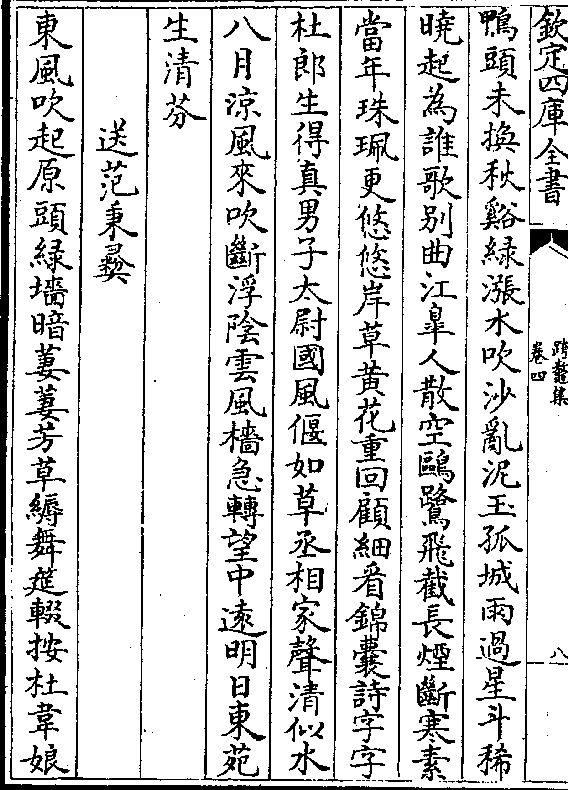 欽定四庫全書
跨鼇集
卷四
八
鴨頭未換秋谿綠漲水吹沙亂泥玉孤城雨過星斗稀
曉起為誰歌別曲江臯人散空鷗鷺飛截長煙斷寒素
當年珠珮更悠悠岸草黃花重回顧細看錦囊詩字字
杜郎生得真男子太尉國風偃如草丞相家聲清似水
八月涼風來吹斷浮陰雲風檣急轉望中遠明日東苑
生清芬
送范秉彞
東風吹起原頭綠墻暗萋萋芳草縟舞筵輟按杜韋娘